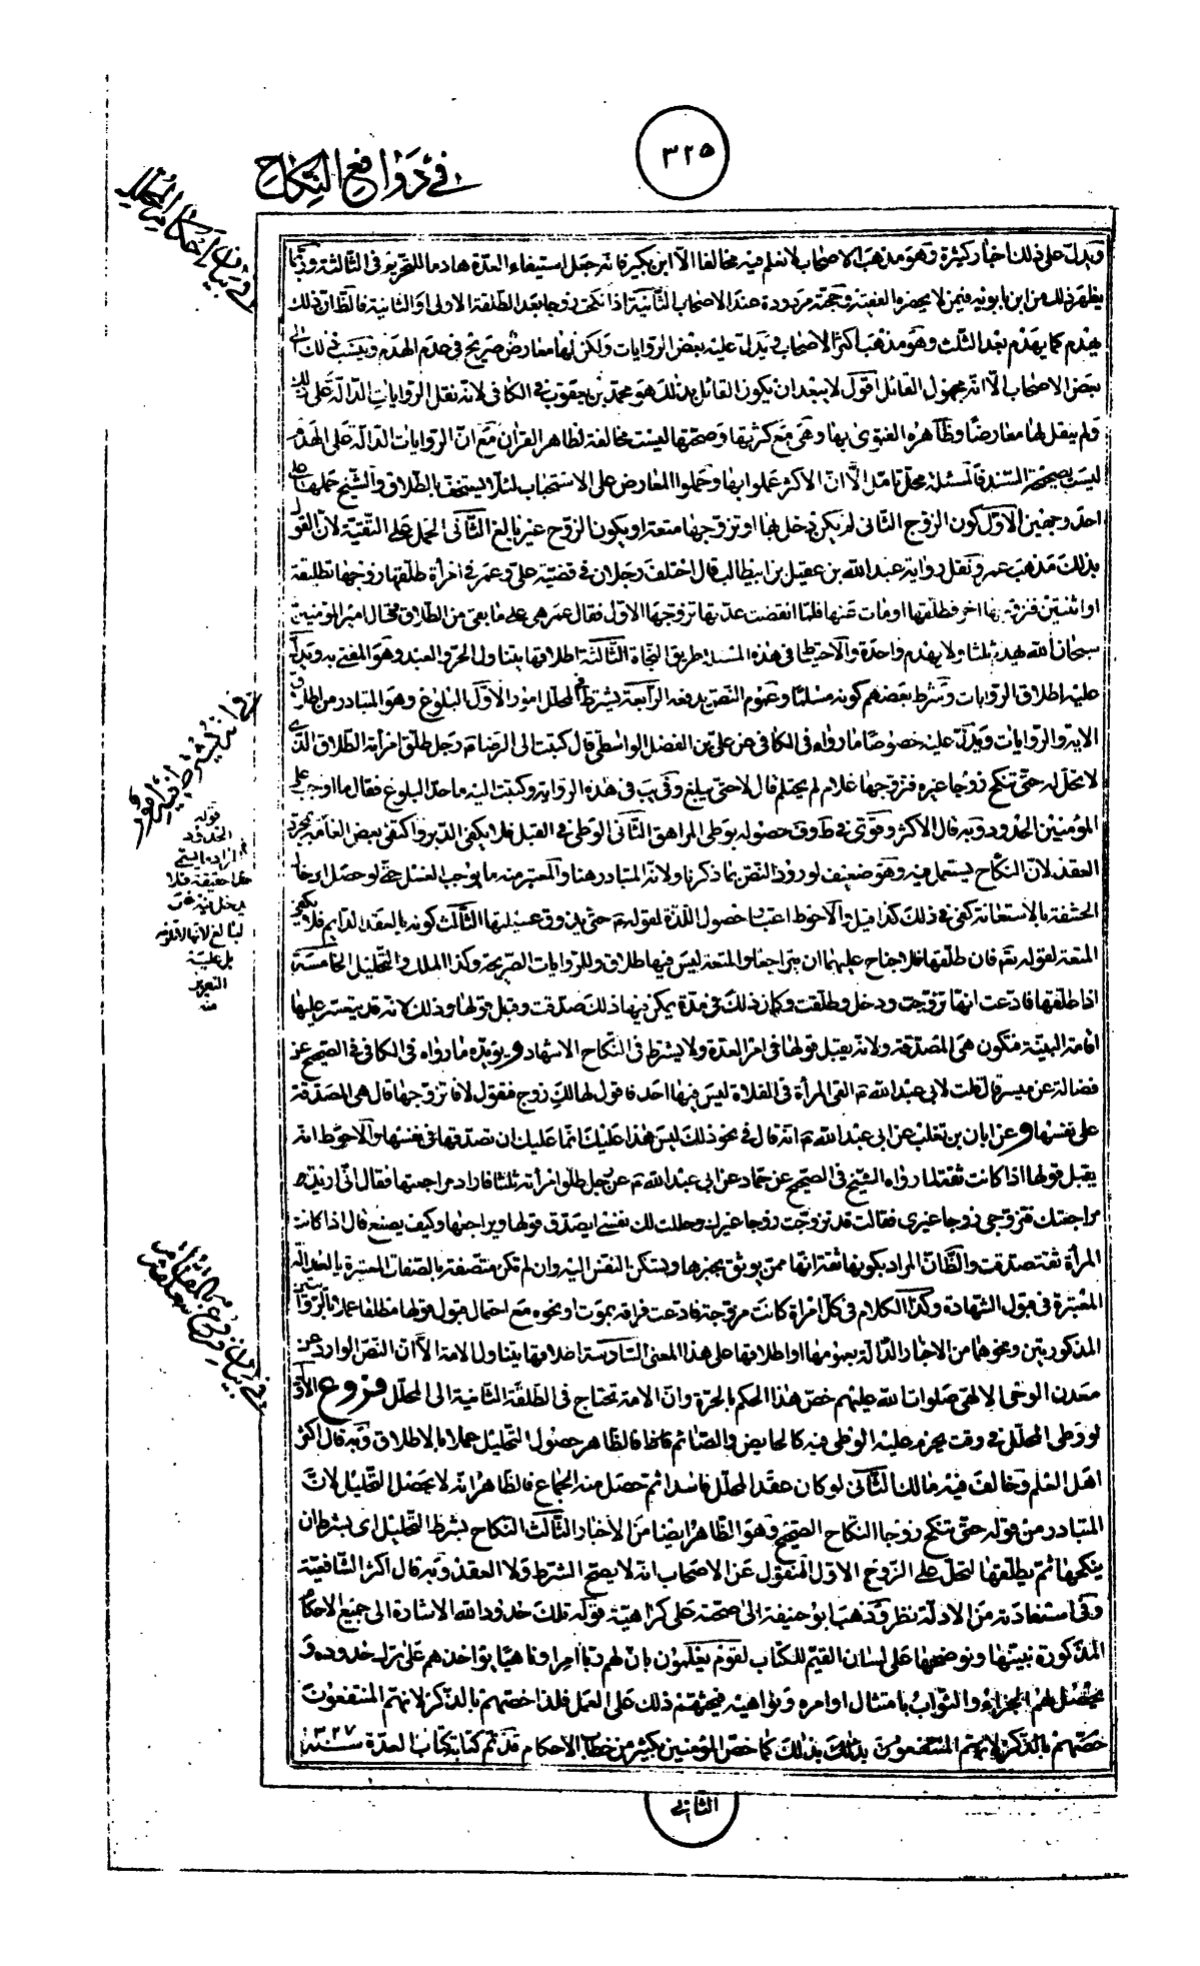 ٣٢٥
في دوافع النكاح
في بيان احكام المحلل
ويدل على ذلك اخبار كثيرة وهو مذهب الاصحاب لا نعلم فيه مخالفا الا ابن بكير فانه جعل استيفاء العدة هادما للتحريم في الثالثة وربما
يظهر ذلك من ابن بابويه فيمن لا يحضره الفقيه وحجته مردودة عند الاصحاب الثانية اذا نكحت زوجا بعد الطلقة الاولى او الثانية فالظ ان ذلك
يهدم كما يهدم بعد الثلث وهو مذهب اكثر الاصحاب ويدل عليه بعض الروايات ولكن لها معارض صريح في عدم الهدم وينسب ذلك الى
بعض الاصحاب الا انه مجهول القائل اقول لا يبعد ان يكون القائل بذلك هو محمد بن يعقوب في الكافي لانه نقل الروايات الدالة على ذلك
ولم ينقل لها معارضا وظاهره الفتوى بها وهي مع كثرتها وصحتها ليست مخالفة لظاهر القران مع ان الروايات الدالة على الهدم
ليست بصحيحة السند فالمسئلة محل تامل الا ان الاكثر عملوا بها وحملوا المعارض على الاستحباب لئلا يستخف بالطلاق والشيخ حملها على
احد وجهين الاول كون الزوج الثاني لم يكن دخل بها او تزوجها متعة او يكون الزوج غير بالغ الثاني الحمل على التقية لان القول
بذلك مذهب عمر ونقل رواية عبد الله بن عقيل بن ابيطالب قال اختلف رجلان في قضية علي وعمر في امرأة طلقها زوجها تطليقة
او اثنتين فتزوجها اخر فطلقها او مات عنها فلما انقضت عدتها تزوجها الاول فقال عمر هي على ما بقي من الطلاق فقال امير المؤمنين
سبحان الله يهدم ثلثا ولا يهدم واحدة والاحتياط في هذه المسئلة طريق النجاة الثالثة اطلاقها يتناول الحر والعبد وهو المفتى به ويدل
عليه اطلاق الروايات وشرط بعضهم كونه مسلما وعموم النص يدفعه الرابعة يشترط في المحلل امور الاول البلوغ وهو المتبادر من اطلاق
الاية والروايات ويدل عليه خصوصا ما رواه في الكافي عن علي بن الفضل الواسطي قال كتبت الى الرضا ع رجل طلق امرأته الطلاق الذي
لا تحل له حتى تنكح زوجا غيره فتزوجها غلام لم يحتلم قال لا حتى يبلغ وفي يب في هذه الرواية وكتبت اليه ما حد البلوغ فقال ما اوجب على
المؤمنين الحدود وبه قال الاكثر وقوى في ط وف حصوله بوطي المراهق الثاني الوطي في القبل فلا يكفي الدبر واكتفى بعض العامة بمجرد
العقد لان النكاح يستعمل فيه وهو ضعيف لورود النص بما ذكرنا ولانه المتبادر هنا والمعتبر منه ما يوجب الغسل حتى لو حصل ادخال
الحشفة بالاستعانة كفى في ذلك كذا قيل والاحوط اعتبار حصول اللذة لقوله ع حتى يذوق عسيلتها الثالث كونه بالعقد الدايم فلا يكفي
المتعة لقوله تع فان طلقها فلا جناح عليهما ان يتراجعا والمتعة ليس فيها طلاق وللروايات الصريحة وكذا الملك والتحليل الخامسة
اذا طلقها فادعت انها تزوجت ودخل وطلقت وكان ذلك في مدة يمكن فيها ذلك صدقت وقبل قولها وذلك لانه قد يتعسر عليها
اقامة البينة فتكون هي المصدقة ولانه يقبل قولها في امر العدة ولا يشترط في النكاح الاشهاد ويؤيده ما رواه في الكافي في الصحيح عن
فضالة عن ميسر قال قلت لابي عبد الله ع القى المرأة في الفلاة ليس فيها احد فاقول لها لك زوج فتقول لا فاتزوجها قال هي المصدقة
على نفسها وعن ابان بن تغلب عن ابي عبد الله ع انه قال في نحو ذلك ليس هذا عليك انما عليك ان تصدقها في نفسها والاحوط انه
يقبل قولها اذا كانت ثقة لما رواه الشيخ في الصحيح عن حماد عن ابي عبد الله ع عن رجل طلق امرأته ثلثا فاراد مراجعتها فقال اني اريد
مراجعتك فتزوجي زوجا غيري فقالت قد تزوجت زوجا غيرك وحللت لك نفسي ايصدق قولها ويراجعها وكيف يصنع قال اذا كانت
المرأة ثقة صدقت والظان المراد بكونها ثقة انها ممن يوثق بخبرها وتسكن النفس اليه وان لم تكن متصفة بالصفات المعتبرة بالعدالة
المعتبرة في قبول الشهادة وكذا الكلام في كل امرأة كانت مزوجة فادعت فراقه بموت او نحوه مع احتمال قبول قولها مطلقا عملا بالروايتين
المذكورتين ونحوهما من الاخبار الدالة بعمومها او اطلاقها على هذا المعنى السادسة اطلاقها يتناول الامة الا ان النص الوارد عن
معدن الوحي الالهي صلوات الله عليهم خص هذا الحكم بالحرة وان الامة تحتاج في الطلقة الثانية الى المحلل فروع الاول
لو وطي المحلل في وقت يحرم عليه الوطي فيه كالحايض والصائم فالظاهر حصول التحليل عملا بالاطلاق وبه قال اكثر
اهل العلم وخالف فيه مالك الثاني لو كان عقد المحلل فاسدا ثم حصل منه الجماع فالظاهر انه لا يحصل التحليل لان
المتبادر من قوله حتى تنكح زوجا النكاح الصحيح وهو الظاهر ايضا من الاخبار الثالث النكاح بشرط التحليل اي بشرط ان
ينكحها ثم يطلقها لتحل على الزوج الاول المنقول عن الاصحاب انه لا يصح الشرط ولا العقد وبه قال اكثر الشافعية
وفي استفادته من الادلة نظر وذهب ابو حنيفة الى صحته على كراهية قوله تلك حدود الله الاشارة الى جميع الاحكام
المذكورة نبينها ونوضحها على لسان القيم للكتاب لقوم يعلمون بان لهم ربا امرا وناهيا يؤاخذهم على ترك حدوده و
يحصل لهم الجزاء والثواب بامتثال اوامره ونواهيه فيحثهم ذلك على العمل فلذا خصهم بالذكر لانهم المنتفعون
خصهم بالذكر لانهم المنتفعون بذلك بذلك كما خص المؤمنين بكثير من خطاب الاحكام قد تم كتابة كتاب العدة سنة ١٣٢٧
في انه يشترط فيه امور
قوله
الحدود
حقيقة فلا
التعزير
منه
الثاني